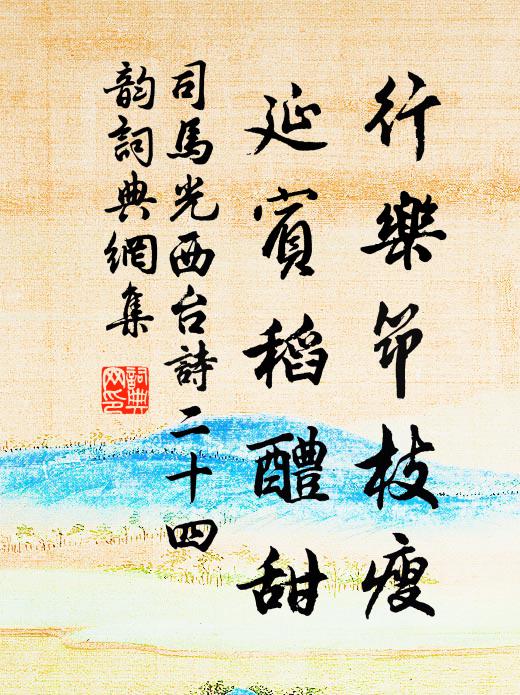 行樂筇枝瘦
延賓稻醴甜
司馬光西台詩二十四
韵詞典網集
詞典
网印